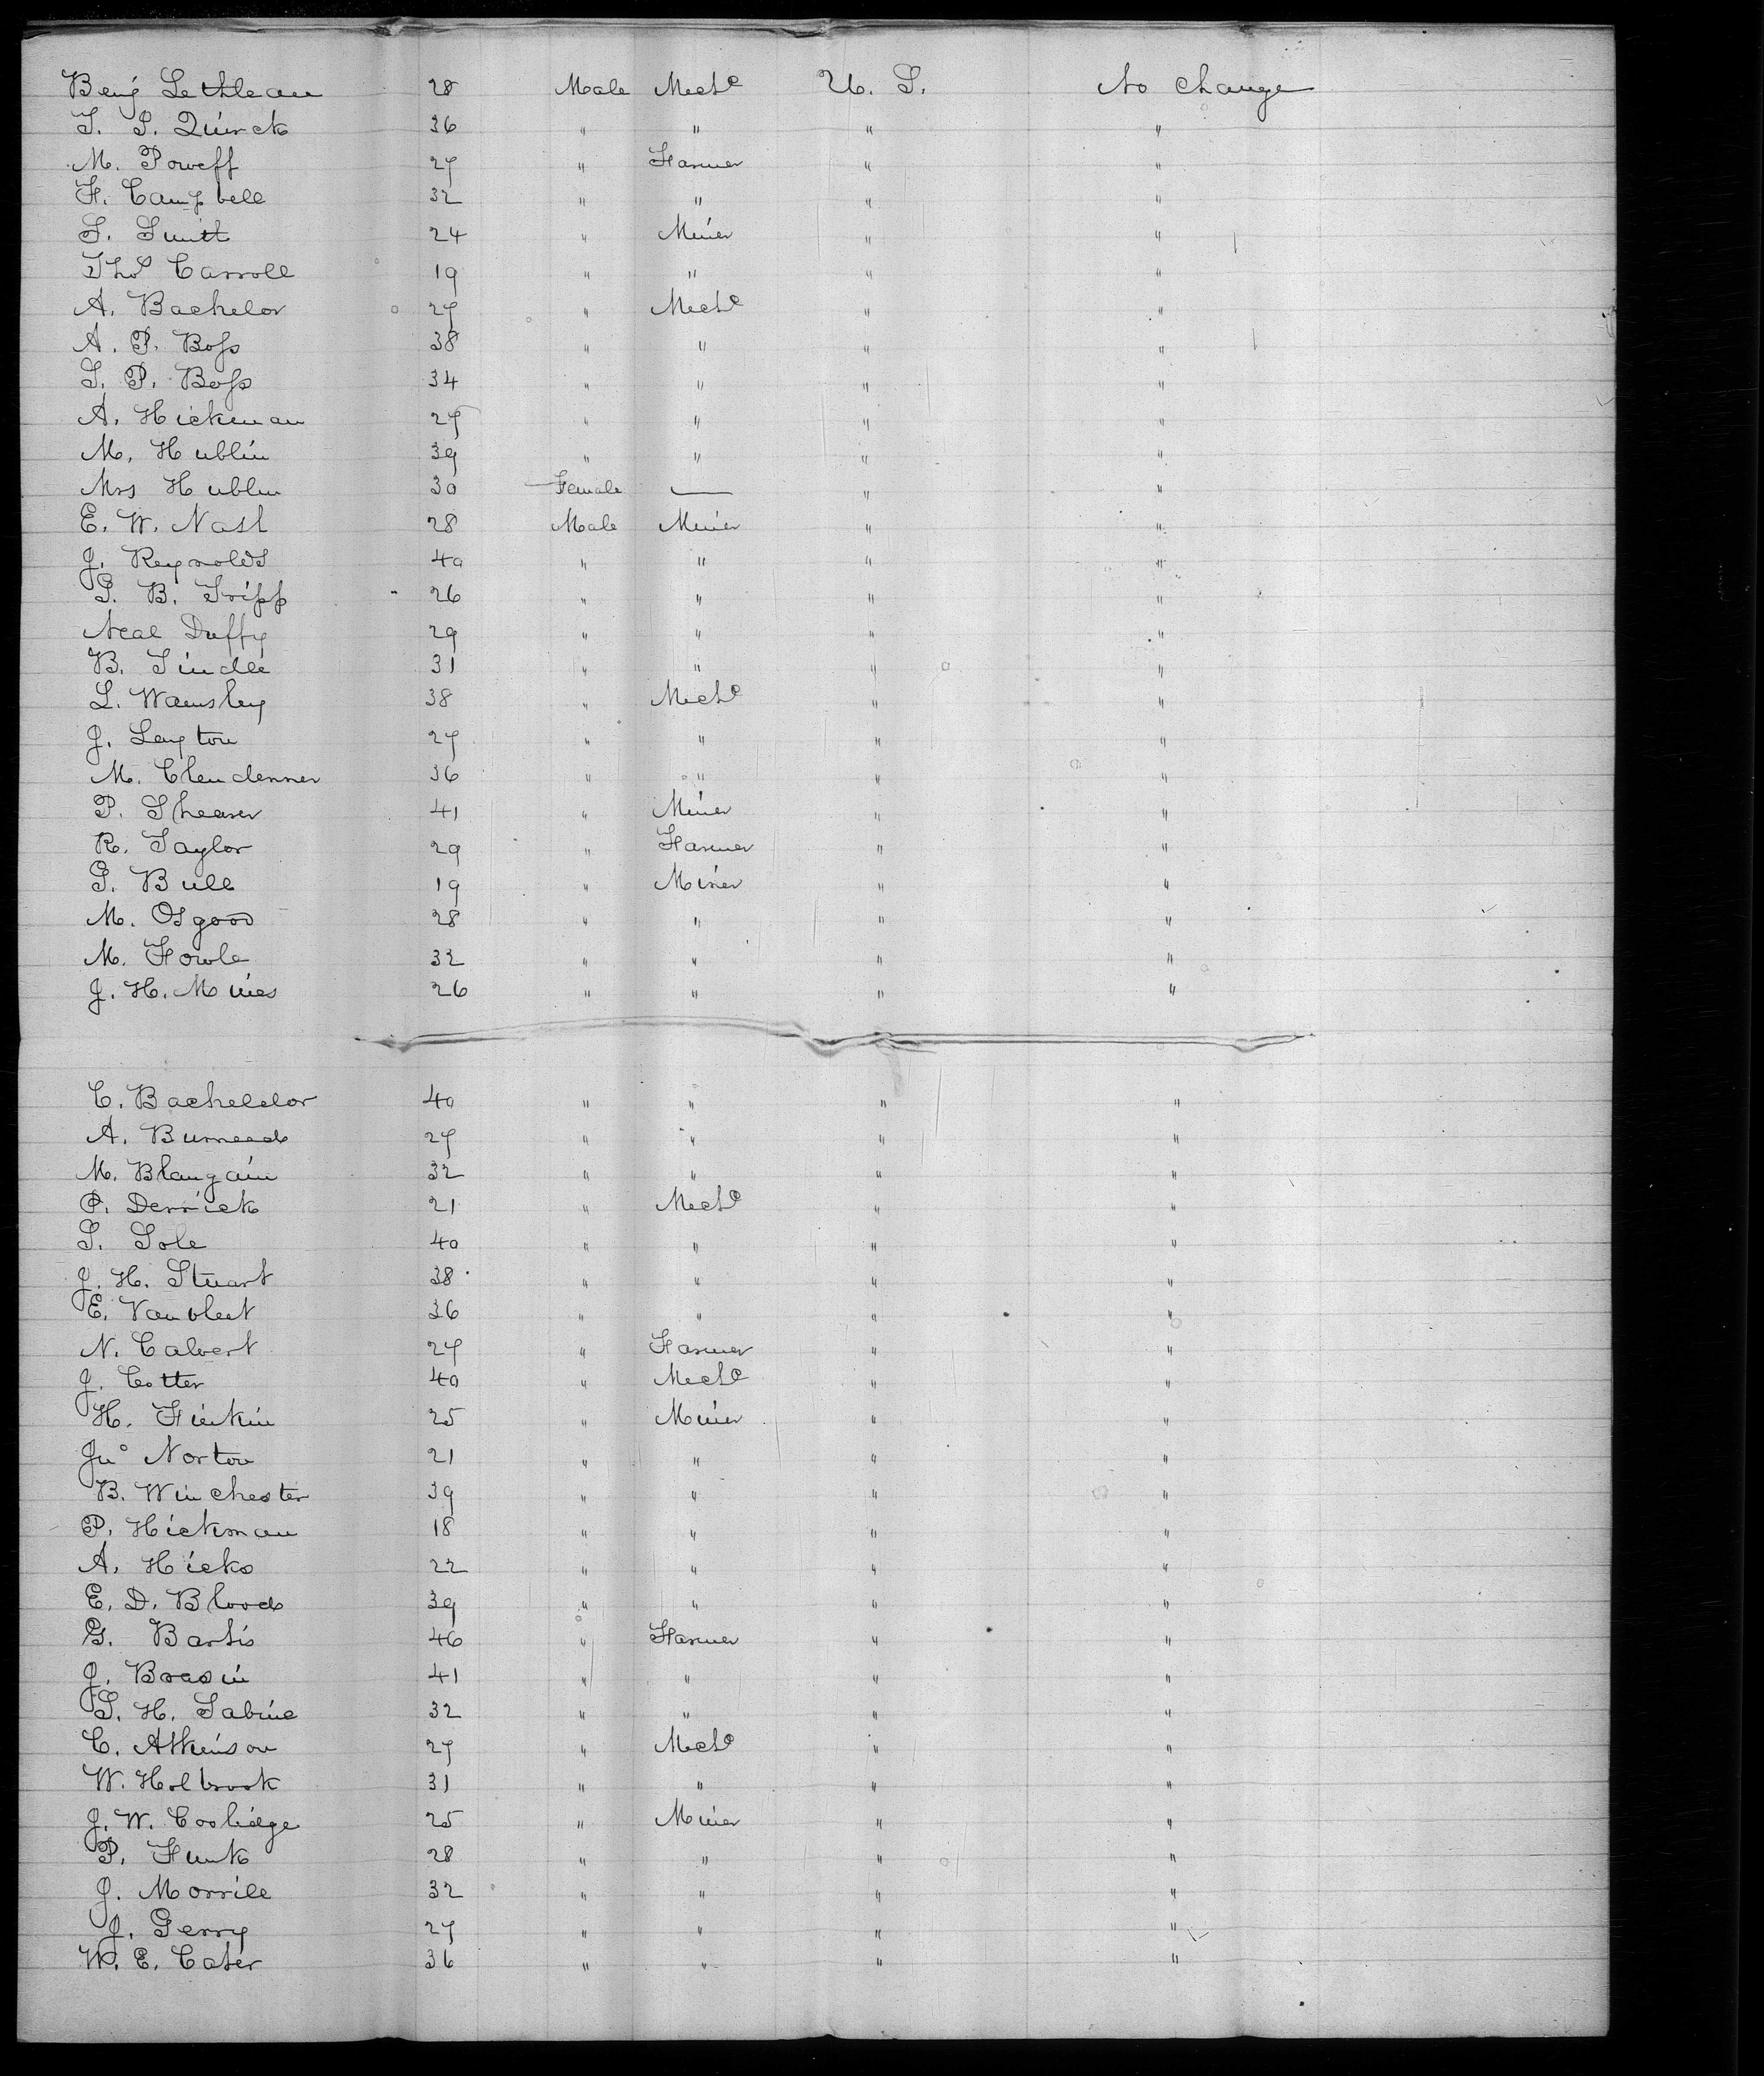 Benj Lethlean 28 Male Mech U. S. No Change
T. S. Quirck 36 " " " "
M. Poweff 27 " Farmer " "
F. Campbell 32 " " " "
S. Smith 24 " Miner " "
Thos Carroll 19 " " " "
A. Bachelor 27 " Mech " "
A. P. Boss 38 " " " "
S. P. Boss 34 " " " "
A. Hickman 27 " " " "
M. Hublin 39 " " " "
Mrs Hublin 30 Female — " "
E. W. Nash 28 Male Miner " "
J. Reynolds 40 " " " "
S. B. Tripp 26 " " " "
Neal Duffy 29 " " " "
B. Tindle 31 " " " "
L. Wamsley 38 " Mech " "
J. Layton 27 " " " "
M. Clendenner 36 " " " "
P. Shearer 41 " Miner " "
R. Taylor 29 " Farmer " "
S. Bull 19 " Miner " "
M. Osgood 28 " " " "
M. Fowle 32 " " " "
J. H. Mines 26 " " " "
C. Bacheldor 40 " " " "
A. 27 " " " "
M. Blangain 32 " " " "
P. Derrick 21 " Mech " "
S. Sole 40 " " " "
J. H. Stuart 38 " " " "
E. Vanvleet 36 " " " "
N. Calvert 27 " Farmer " "
J. Cotter 40 " Mech " "
H. Finkin 25 " Miner " "
Jno Norton 21 " " " "
B. Winchester 39 " " " "
P. Hickman 18 " " " "
A. Hicks 22 " " " "
E. D. Blood 39 " " " "
G. Bartis 46 " Farmer " "
J. Brasin 41 " " " "
S. H. Sabine 32 " " " "
C. Atkinson 27 " Mech " "
W. Holbrook 31 " " " "
J. W. Coolidge 25 " Miner " "
P. Funk 28 " " " "
J. Morrill 32 " " " "
J. Gerry 27 " " " "
W. E. Cater 36 " " " "